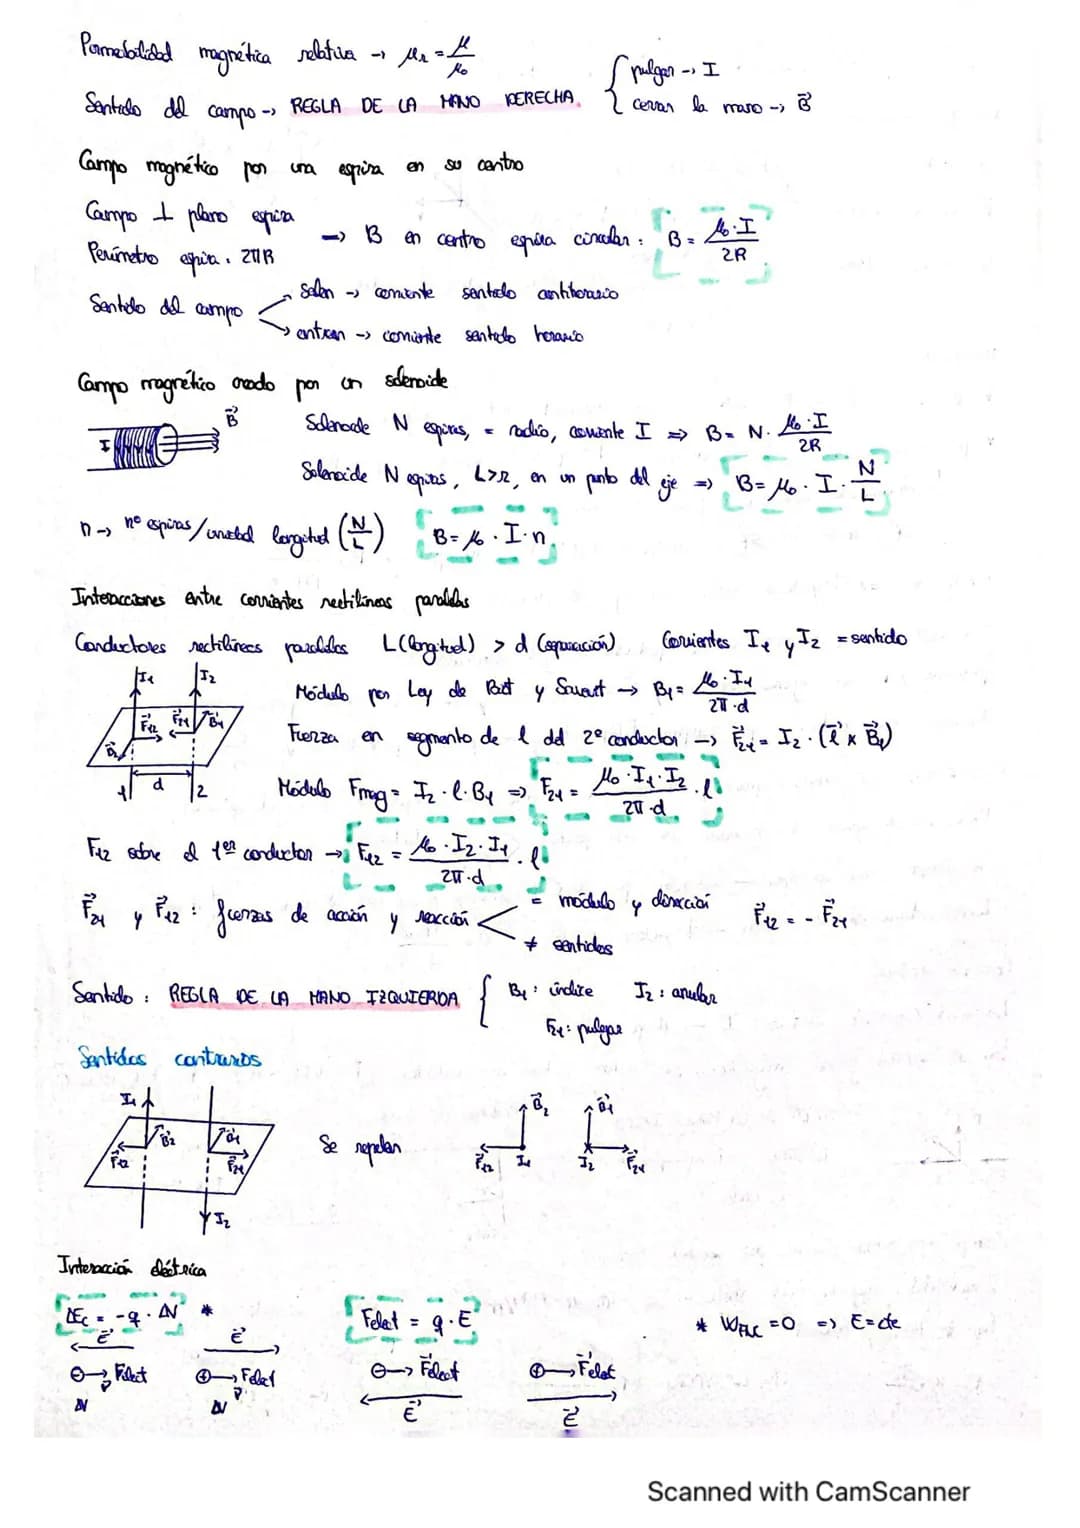 Permeabilidad magnética relativa → μr = μ/μ0
Sentido del campo → REGLA DE LA MANO DERECHA { pulgar → I
cerrar la mano → B⃗
Campo magnético por una espira en su centro
Campo ⊥ plano espira
Perímetro espira: 2πR
→ B en centro espira circular: B = μ0·I/2R
Sentido del campo
salen → corriente sentido antihorario
entran → corriente sentido horario
Campo magnético creado por un solenoide
I B⃗
Solenoide N espiras, = radio, corriente I ⇒ B = N· μ0·I/2R
Solenoide N espiras, L>r, en un punto del eje ⇒ B = μ0·I·N/L
n → nº espiras/unidad longitud (N/L) B = μ0·I·n
Interacciones entre corrientes rectilíneas paralelas
Conductores rectilíneos paralelos L (longitud) > d (separación) Corrientes I1 y I2 = sentido
I1 I2
F⃗12 F⃗21 B⃗1
B⃗2
1 d 2
Módulo por Ley de Biot y Savart → B1 = μ0·I1/2π·d
Fuerza en segmento de l del 2º conductor → F⃗21 = I2·(l⃗ x B⃗1)
Módulo Fmag = I2·l·B1 ⇒ F21 = μ0·I1·I2/2π·d ·l
F12 sobre el 1er conductor → F12 = μ0·I2·I1/2π·d ·l
F⃗21 y F⃗12: fuerzas de acción y reacción
= módulo y dirección
≠ sentidos
F⃗12 = - F⃗21
Sentido: REGLA DE LA MANO IZQUIERDA { B1: índice I2: anular
F21: pulgar
Sentidos contrarios
I1
B⃗2 B⃗1
F⃗12 F⃗21
I2
Se repelen
B⃗2 B⃗1
F⃗12 I1 I2 F⃗21
Interacción eléctrica
ΔEc = -q·ΔV *
Felect = q·E
* WFNC = 0 ⇒ E = cte
E⃗ E⃗
⊖→ Felect ⊕→ Felect
ΔV ΔV
⊖→ F⃗elect ⊕→ F⃗elect
E⃗ E⃗
Scanned with CamScanner